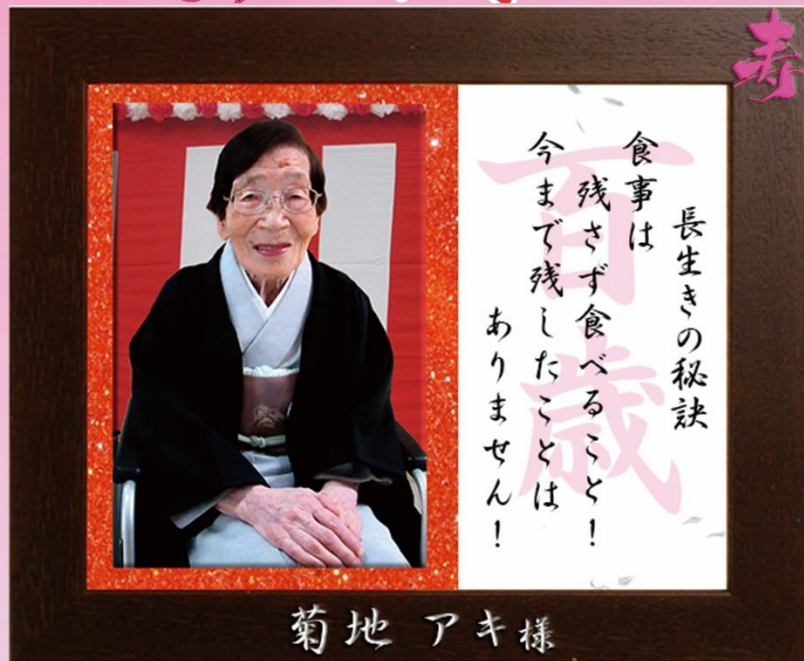 寿
百歳
長生きの秘訣
食事は
残さず食べること!
今まで残したことは
ありません!
菊地 アキ様